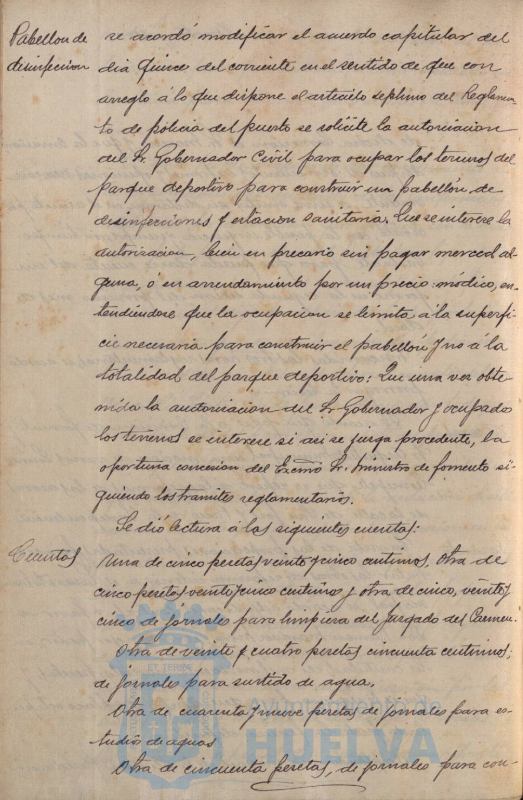 Pabellon de
desinfeccion
se acordó modificar el acuerdo capitular del
dia quince del corriente en el sentido de que con
arreglo á lo que dispone el articulo septimo del Reglamen
to de policia del puerto se solicite la autorizacion
del Sr. Gobernador Civil para ocupar los terrenos del
parque deportivo para construir un pabellón de
desinfecciones y estacion sanitaria. Que se interese la
autorizacion, bien en precario sin pagar merced al-
guna, ó en arrendamiento por un precio módico, en-
tendiendose que la ocupacion se limita á la superfi-
cie necesaria para construir el pabellón y no á la
totalidad del parque deportivo: Que una vez obte-
nida la autorizacion del Sr Gobernador y ocupado
los terrenos se interese si asi se juzga procedente, la
oportuna concesion del Excmo Sr. Ministro de fomento si-
guiendo los tramites reglamentarios.
Se dió lectura á las siguientes cuentas:
Cuentas
Una de cinco pesetas veinte y cinco centimos. Otra de
cinco pesetas veinte y cinco centimos y otra de cinco, veinte y
cinco de jornales para limpieza del Juzgado del Carmen.
Otra de veinte y cuatro pesetas cincuenta centimos;
de jornales para surtido de agua.
Otra de cuarenta y nueve pesetas de jornales para es-
tudios de aguas
Otra de cincuenta pesetas, de jornales para con-
HUELVA